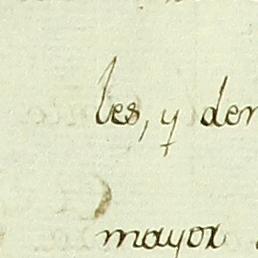 les, y den
mayor